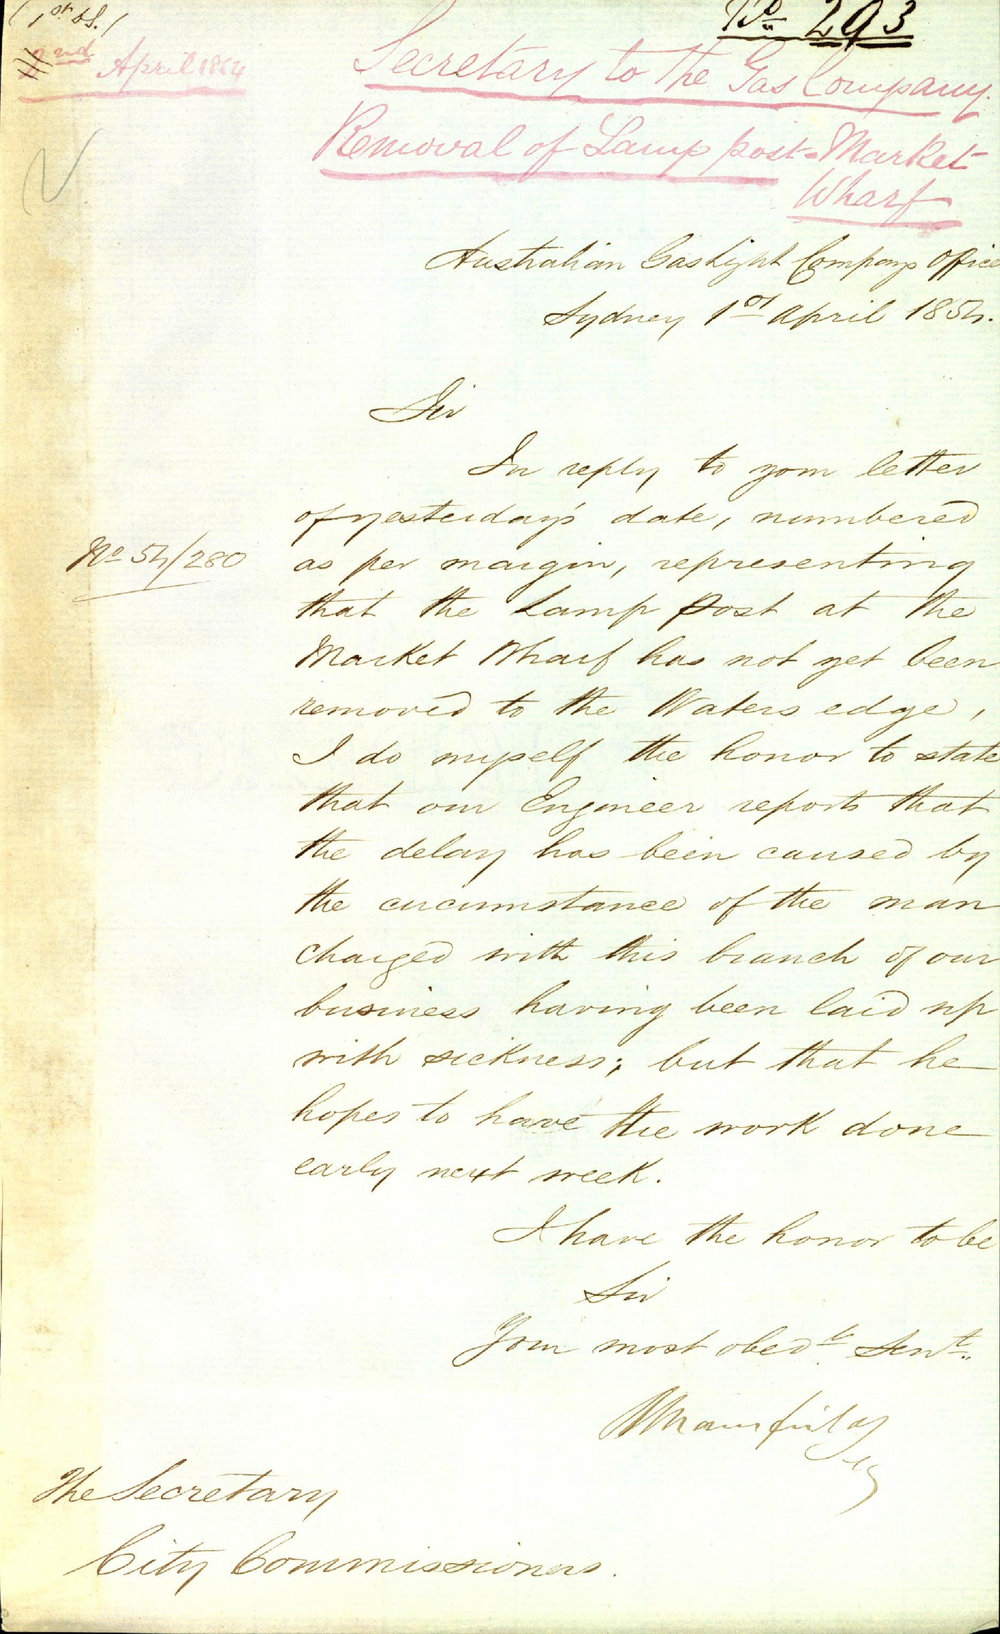 No 293
2nd April 1854
Secretary to the Gas Company
Removal of Lamp post - Market
Wharf
Australian Gas Light Company's Office
Sydney 1st April 1854.
Sir
In reply to your letter
of yesterday's date, numbered
No 54/280
as per margin, representing
that the Lamp Post at the
Market Wharf has not yet been
removed to the Waters edge,
I do myself the honor to state
that our Engineer reports that
the delay has been caused by
the circumstance of the man
charged with this branch of our
business having been laid up
with sickness; but that he
hopes to have the work done
early next week.
I have the honor to be
Sir
Your most obedt. Servt.
The Secretary
City Commissioners.